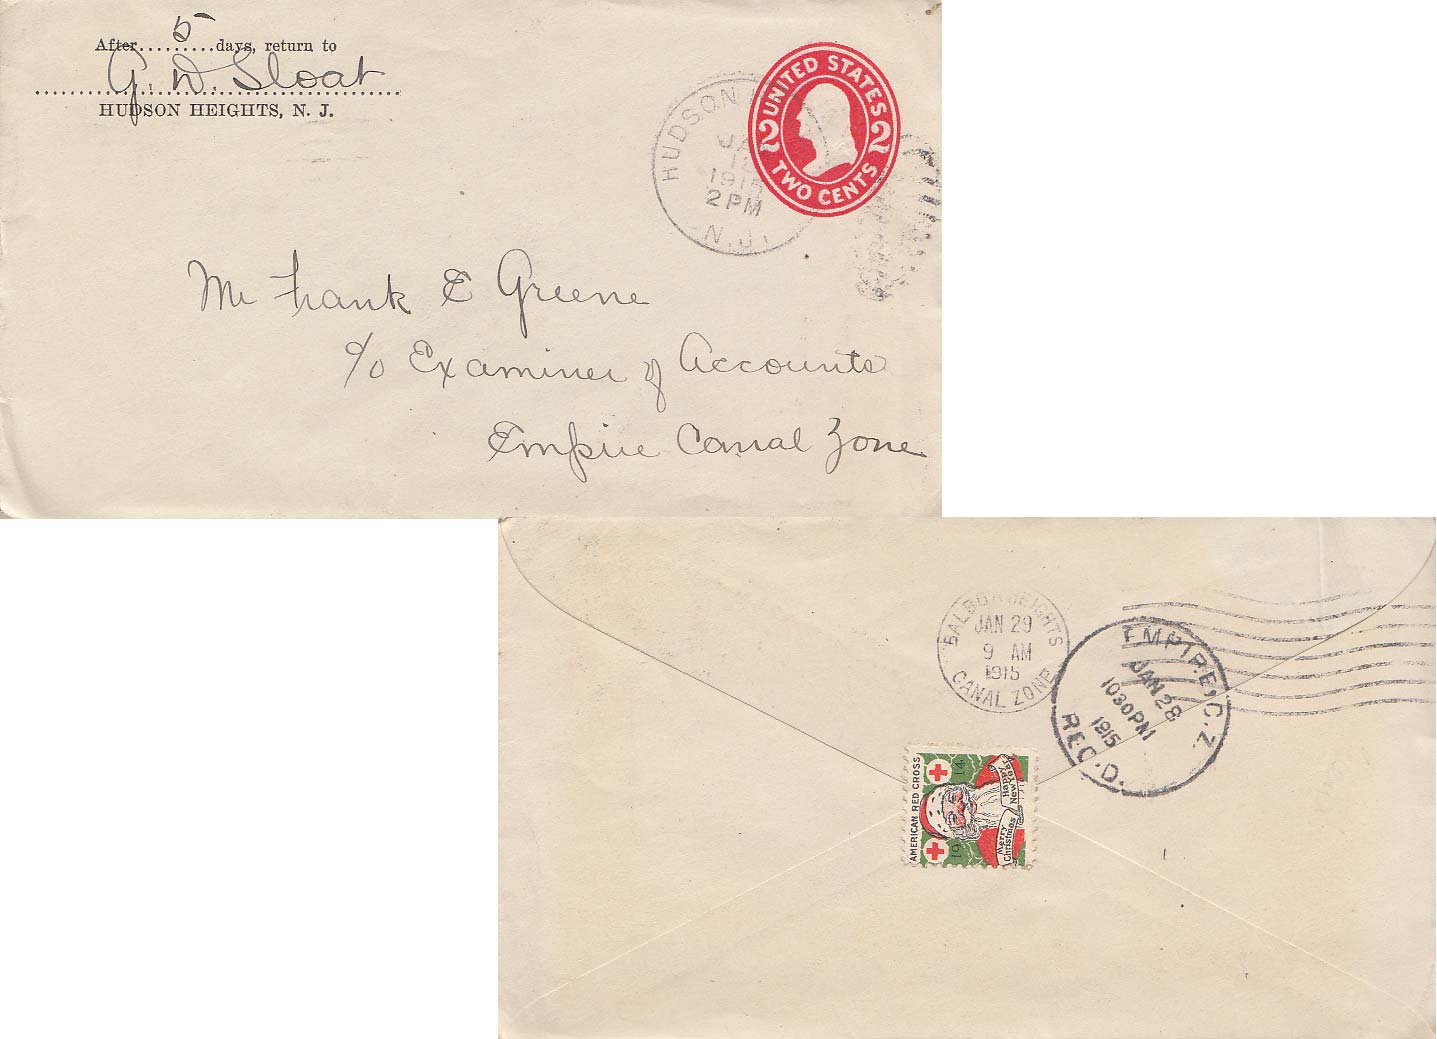 After 5 days, return to
G. D. Sloat
HUDSON HEIGHTS, N. J.
HUDSON
1915
2 PM
N.J.
UNITED STATES
2 2
TWO CENTS
Mr Frank E Greene
c/o Examiner of Accounts
Empire Canal Zone
BALBOA HEIGHTS
JAN 29
9 AM
1915
CANAL ZONE
EMPIRE, C.Z.
JAN 28
1030PM
1915
REC'D.
AMERICAN RED CROSS
1914
Merry Christmas
Happy New Year